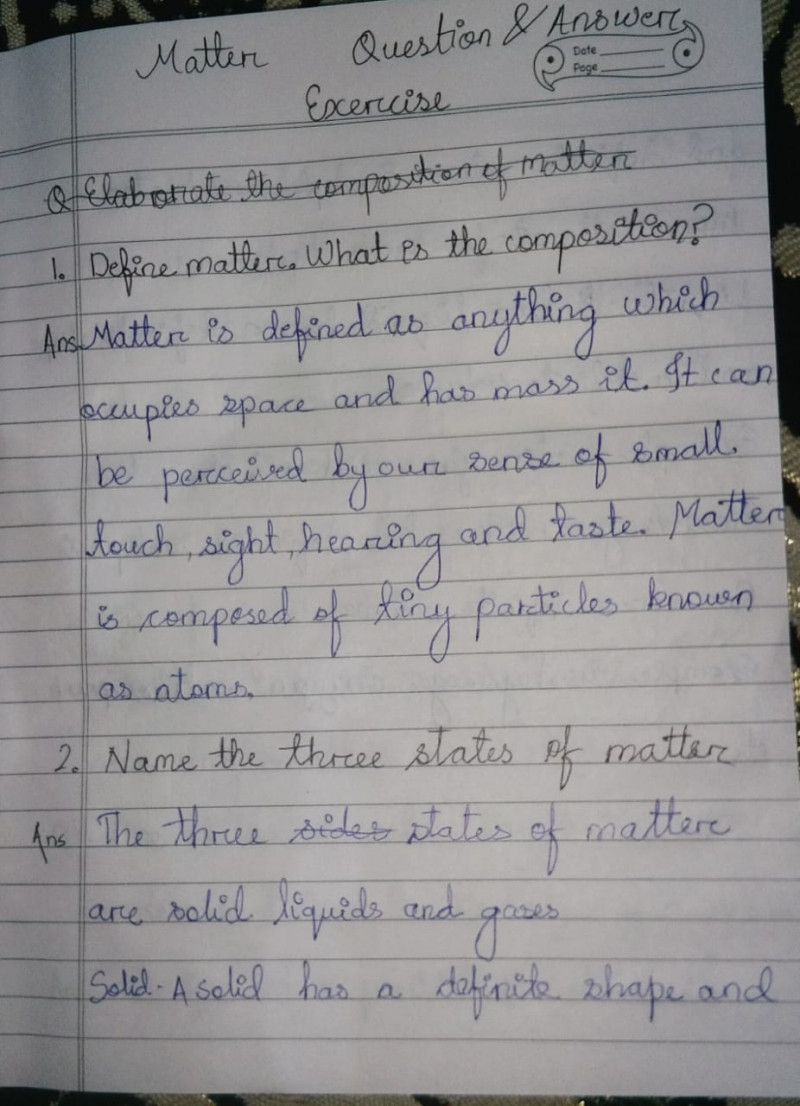 Matter Question & Answer
Date
Page
Exercise
Q Elaborate the composition of matter
1. Define matter. What is the composition?
Ans Matter is defined as anything which
occupies space and has mass it. It can
be perceived by our sense of small.
touch, sight, hearing and taste. Matter
is composed of tiny particles known
as atoms.
2. Name the three states of matter
Ans The three sides states of matter
are solid liquids and gases
Solid - A solid has a definite shape and